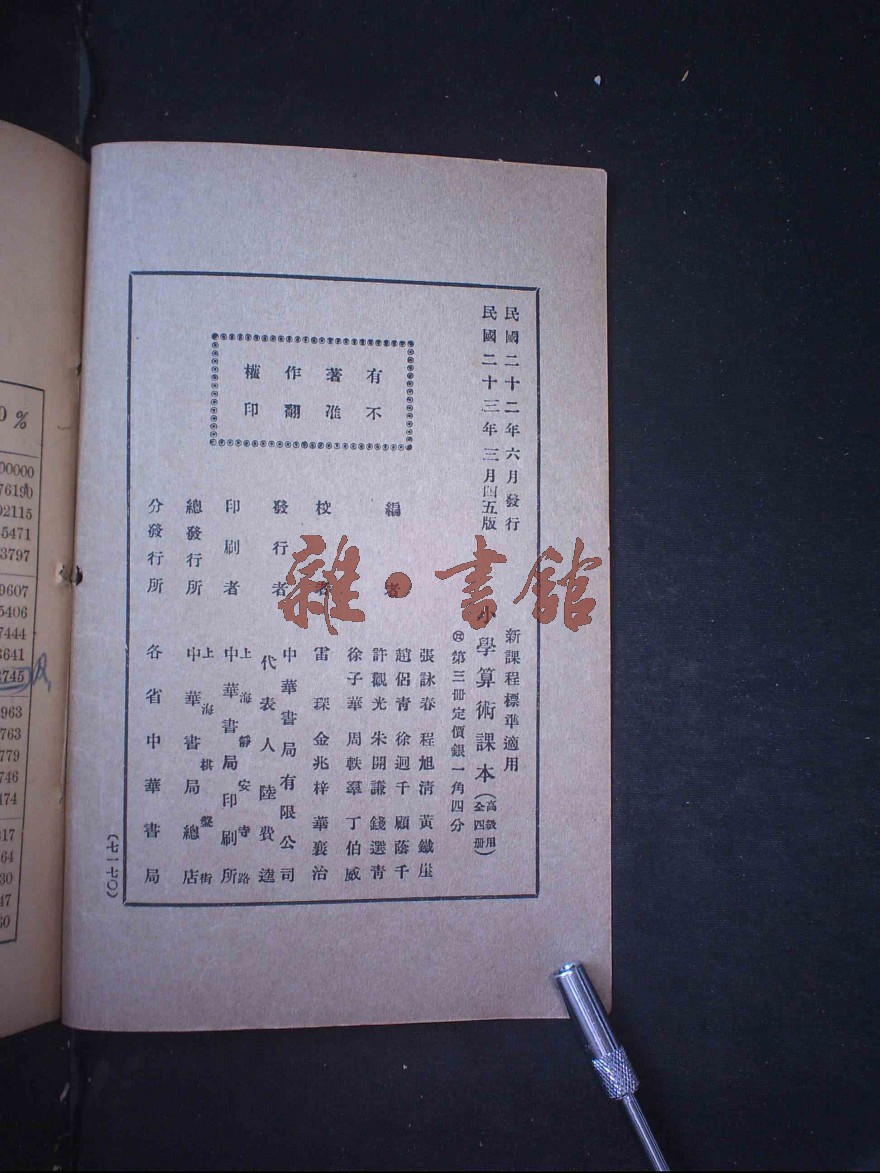 民國二十二年六月發行
民國二十三年三月四五版
新課程標準適用
小學算術課本(高級用全四册)
第三册定價銀一角四分
有著作權
不准翻印
編者
張詠春 程旭清 黃鐵崖
趙侶青 徐迥千 顧蔭千
許觀光 朱開謙 錢選青
校者
徐子華 周軼羣 丁伯威
雷琛 金兆梓 華襄治
發行者
中華書局有限公司
代表人 陸費逵
印刷者
上海靜安寺路
中華書局印刷所
總發行所
上海棋盤街
中華書局總店
分發行所
各省中華書局
(七一七〇)
雜·書館
0%
00000
76190
02115
5471
3797
9607
5406
7444
3641
3745
963
763
779
746
474
317
64
30
47
60